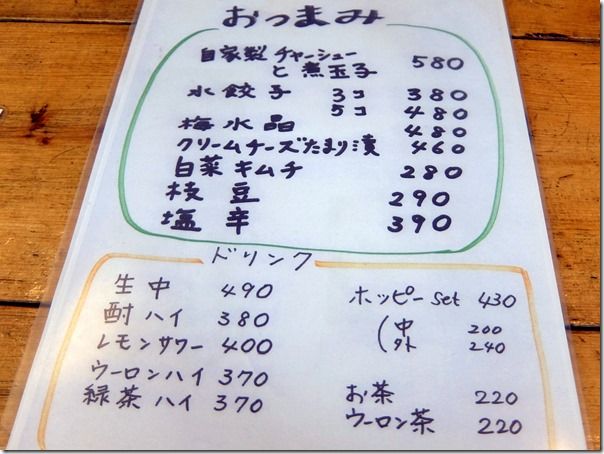 おつまみ
自家製 チャーシューと煮玉子 580
水餃子 3コ 380
5コ 480
梅水晶 480
クリームチーズたまり漬 460
白菜キムチ 280
枝豆 290
塩辛 390
ドリンク
生中 490
酎ハイ 380
レモンサワー 400
ウーロンハイ 370
緑茶ハイ 370
ホッピー set 430
(中 200
外 240
お茶 220
ウーロン茶 220